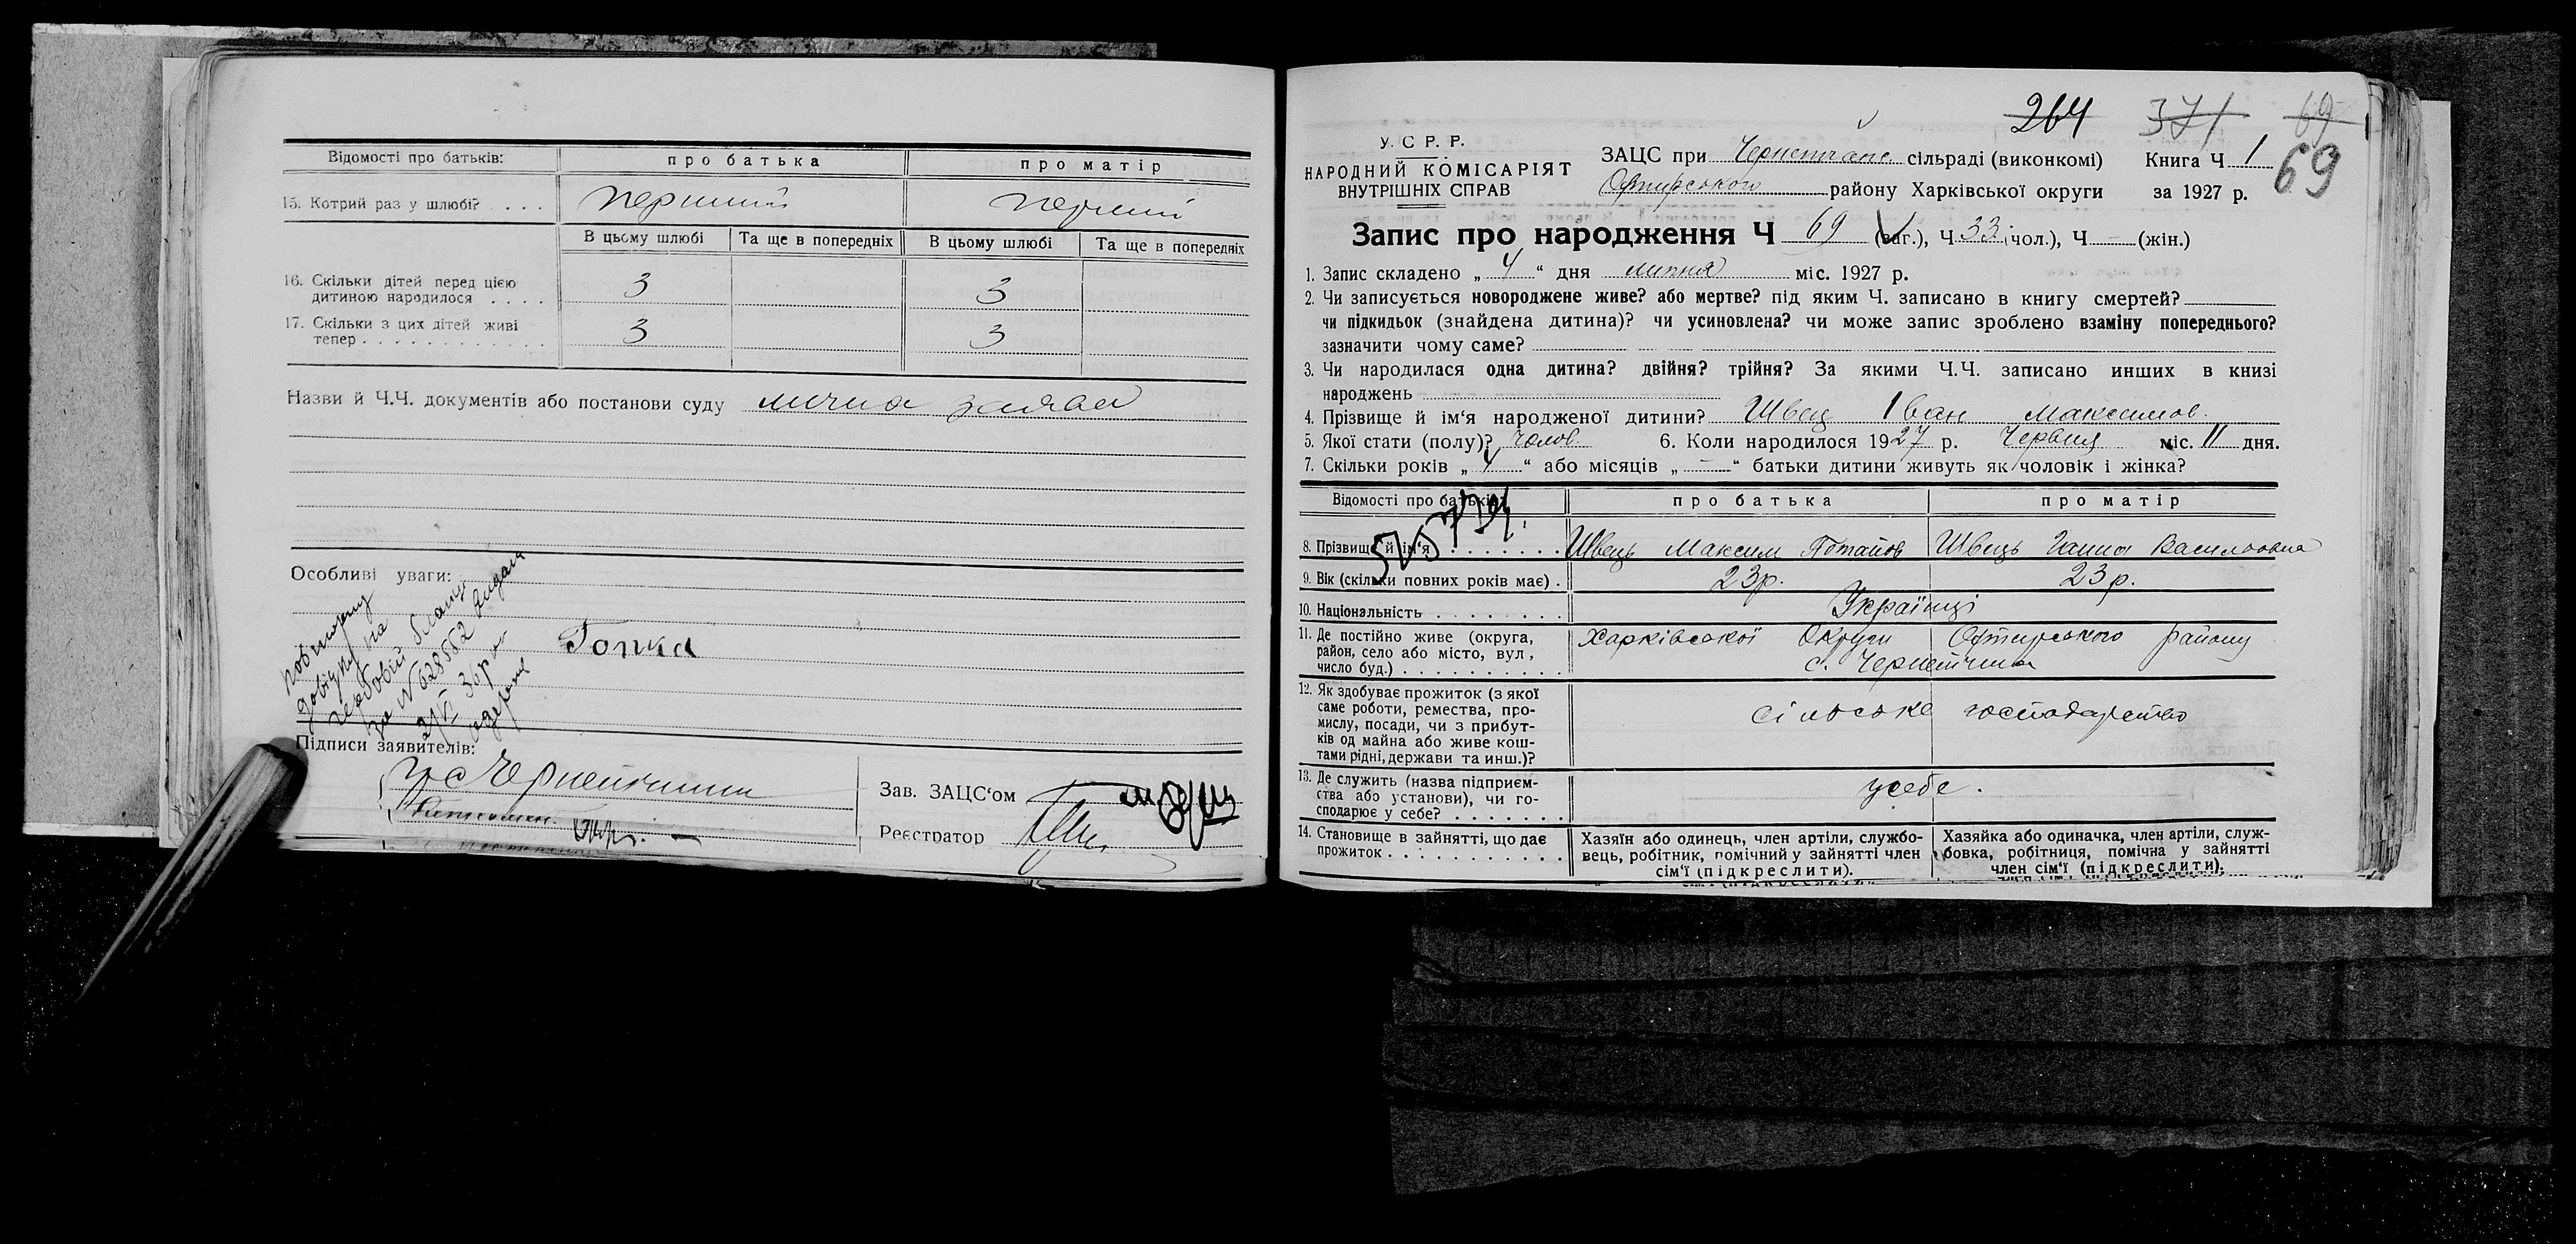 Відомості про батьків: про батька про матір
15. Котрий раз у шлюбі? . . . . перший перший
В цьому шлюбі Та ще в попередніх В цьому шлюбі Та ще в попередніх
16. Скільки дітей перед цією
дитиною народилося . . . . 3 3
17. Скільки з цих дітей живі
тепер . . . . . . . . . . . . . 3 3
Назви й Ч.Ч. документів або постанови суду лична заява
Особливі уваги:
повторну
довідку на
гербовій бланці
за № 628552 видали
2/VI 36 р.
одержав
Гопка
Підписи заявителів:
Зав. ЗАЦС'ом
Реєстратор
264 371 69
69
У. С. Р. Р.
НАРОДНИЙ КОМІСАРІЯТ
ВНУТРІШНІХ СПРАВ
ЗАЦС при сільраді (виконкомі) Книга Ч 1
району Харківської округи за 1927 р.
Запис про народження Ч 69 (заг.), Ч 33 (чол.), Ч — (жін.)
1. Запис складено „ 4 “ дня липня міс. 1927 р.
2. Чи записується новороджене живе? або мертве? під яким Ч. записано в книгу смертей?
чи підкидьок (знайдена дитина)? чи усиновлена? чи може запис зроблено взаміну попереднього?
зазначити чому саме?
3. Чи народилася одна дитина? двійня? трійня? За якими Ч.Ч. записано инших в книзі
народжень
4. Прізвище й ім'я народженої дитини? Швец Іван Максимов.
5. Якої стати (полу)? чолов. 6. Коли народилося 1927 р. Червня міс. 11 дня.
7. Скільки років „ 4 “ або місяців „ — “ батьки дитини живуть як чоловік і жінка?
Відомості про батьків: про батька про матір
8. Прізвище й ім'я . . . . . . . Швець Максим Потапов Швець Ганна Василовна
9. Вік (скільки повних років має) . 23 р. 23 р.
10. Національність . . . . . . . . Українці
11. Де постійно живе (округа, Харківської Округи Охтирського району
район, село або місто, вул., с. Чернетчина
число буд.) . . . . . . . . . .
12. Як здобуває прожиток (з якої
саме роботи, ремества, про-
мислу, посади, чи з прибут- сільське господарство
ків од майна або живе кош-
тами рідні, держави та инш.)?
13. Де служить (назва підприєм-
ства або установи), чи го- усебе.
сподарює у себе? . . . . . . .
14. Становище в зайнятті, що дає Хазяїн або одинець, член артіли, службо- Хазяйка або одиначка, член артіли, служ-
прожиток . . . . . . . . . . . вець, робітник, помічний у зайнятті член бовка, робітниця, помічна у зайнятті
сім'ї (підкреслити). член сім'ї (підкреслити).